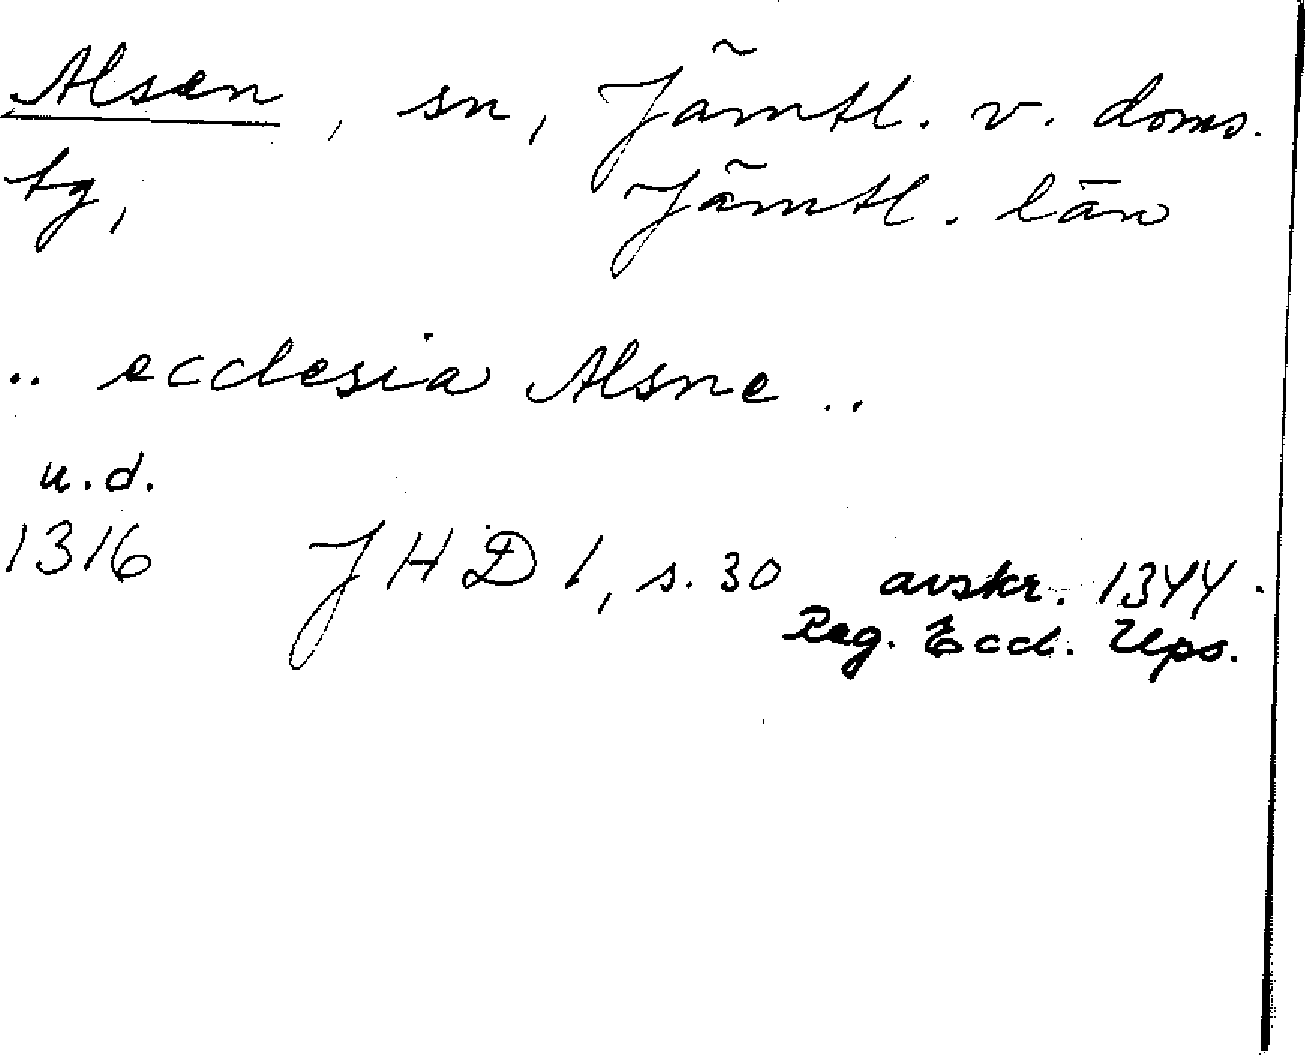 Alsen, sn, Jämtl. v. doms.
tg, Jämtl. län
.. ecclesia Alsne ..
u.d.
1316 JHD 1, s. 30 avskr. 1344.
Reg. Eccl. Ups.